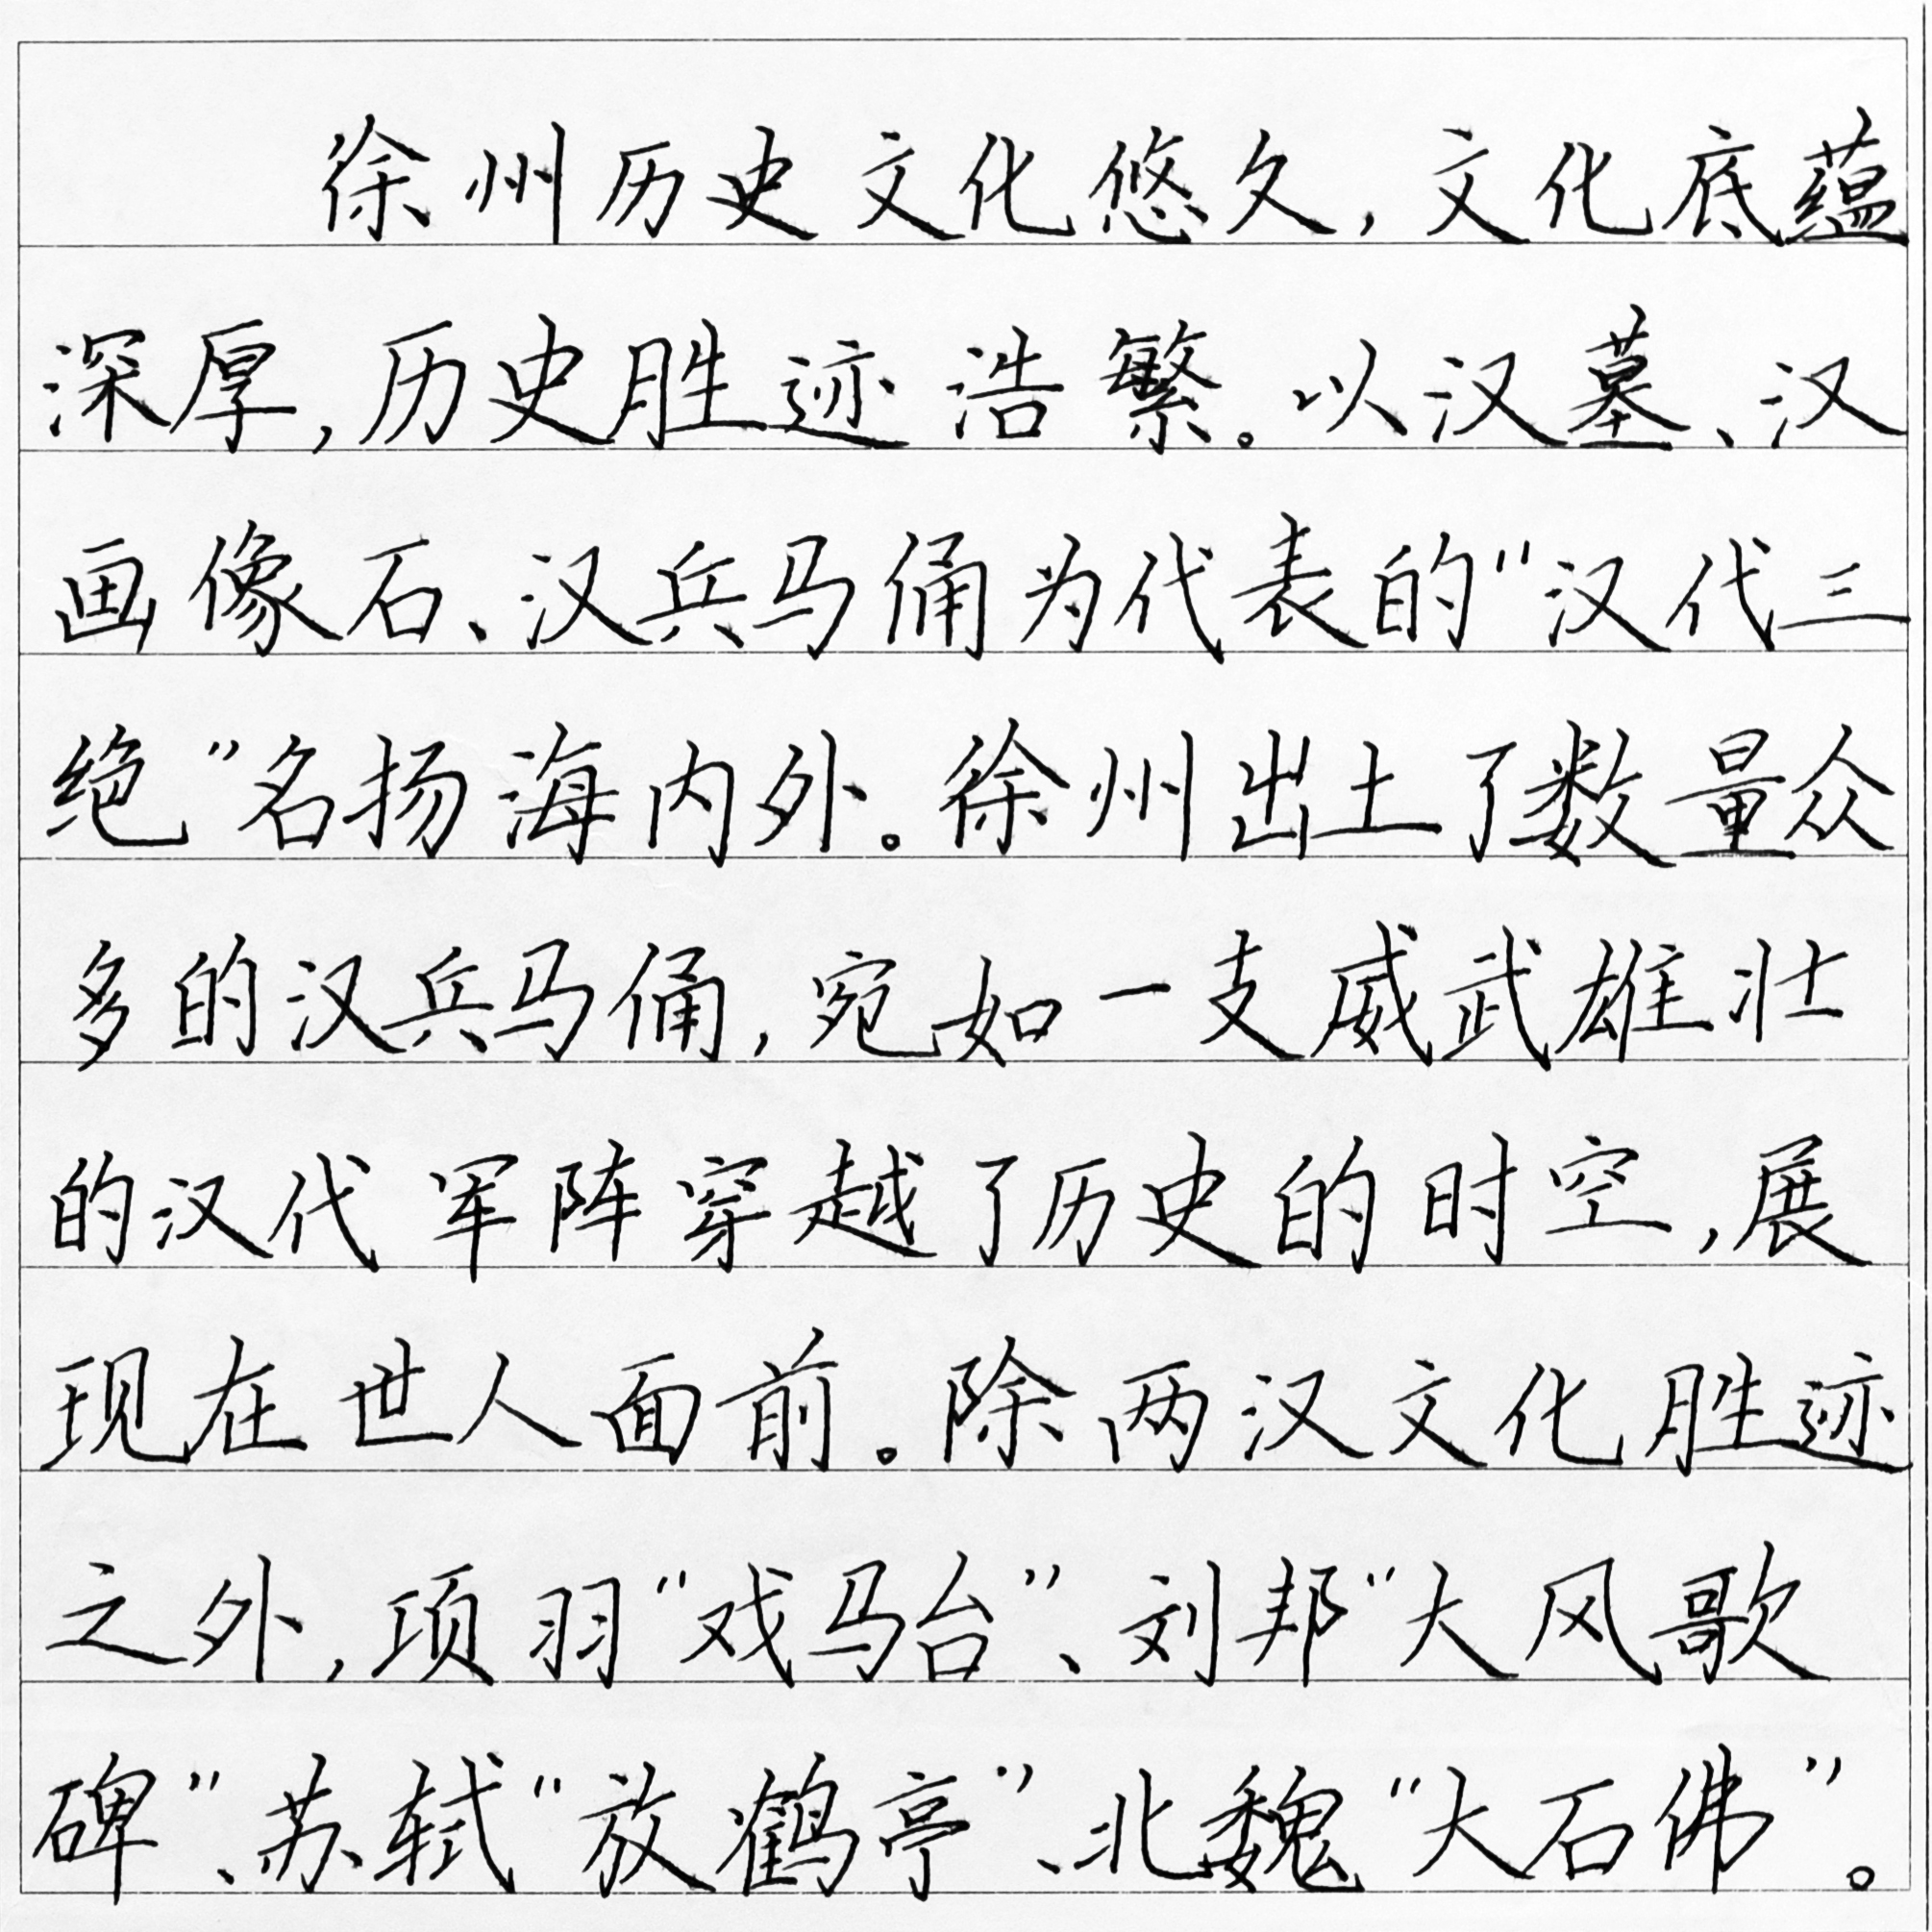 徐州历史文化悠久,文化底蕴
深厚,历史胜迹浩繁。以汉墓、汉
画像石、汉兵马俑为代表的“汉代三
绝”名扬海内外。徐州出土了数量众
多的汉兵马俑,宛如一支威武雄壮
的汉代军阵穿越了历史的时空,展
现在世人面前。除两汉文化胜迹
之外,项羽“戏马台”、刘邦“大风歌
碑”、苏轼“放鹤亭”、北魏“大石佛”。